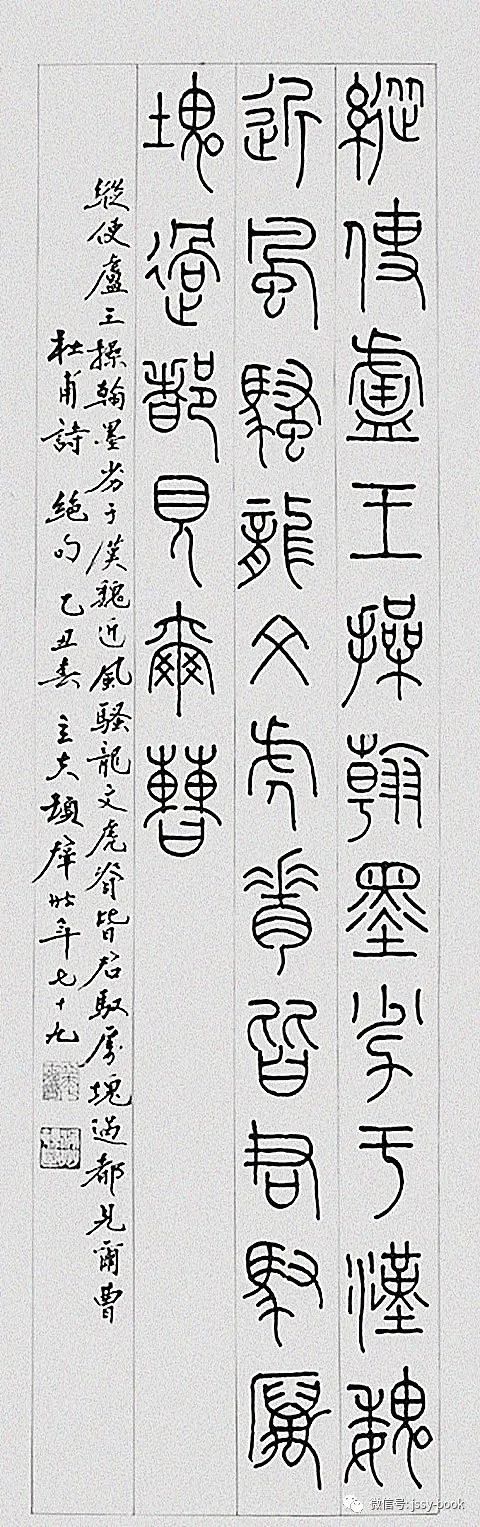 縱使盧王操翰墨劣于漢魏
近風騷龍文虎脊皆君馭厲
塊過都見爾曹
縱使盧王操翰墨劣于漢魏近風騷龍文虎脊皆君馭厲塊過都見爾曹
杜甫詩 絕句 乙丑春 年七十九
微信号: jssy-pook